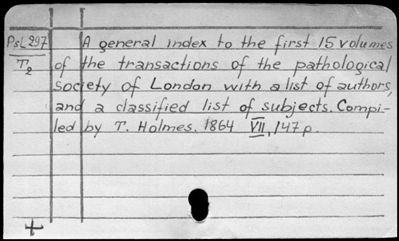 PsL 297 A general index to the first 15 volumes
T2 of the transactions of the pathological
society of London with a list of authors,
and a classified list of subjects. Compi-
led by T. Holmes. 1864 VII, 147 p.